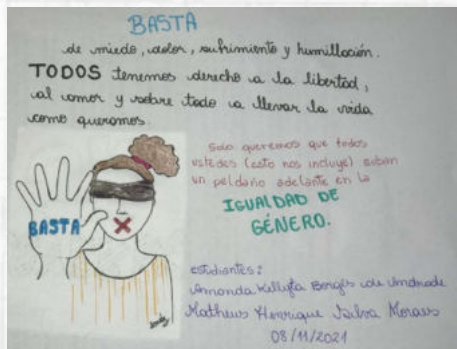 BASTA
de miedo, dolor, sufrimiento y humillación.
TODOS tenemos derecho a la libertad,
al amor y sobre todo a llevar la vida
como queremos.
Solo queremos que todos
ustedes (esto nos incluye) suban
un peldaño adelante en la
IGUALDAD DE
GÉNERO.
BASTA
estudiantes:
Amanda Kellyta Borges de Andrade
Matheus Henrique Silva Moraes
08/11/2021